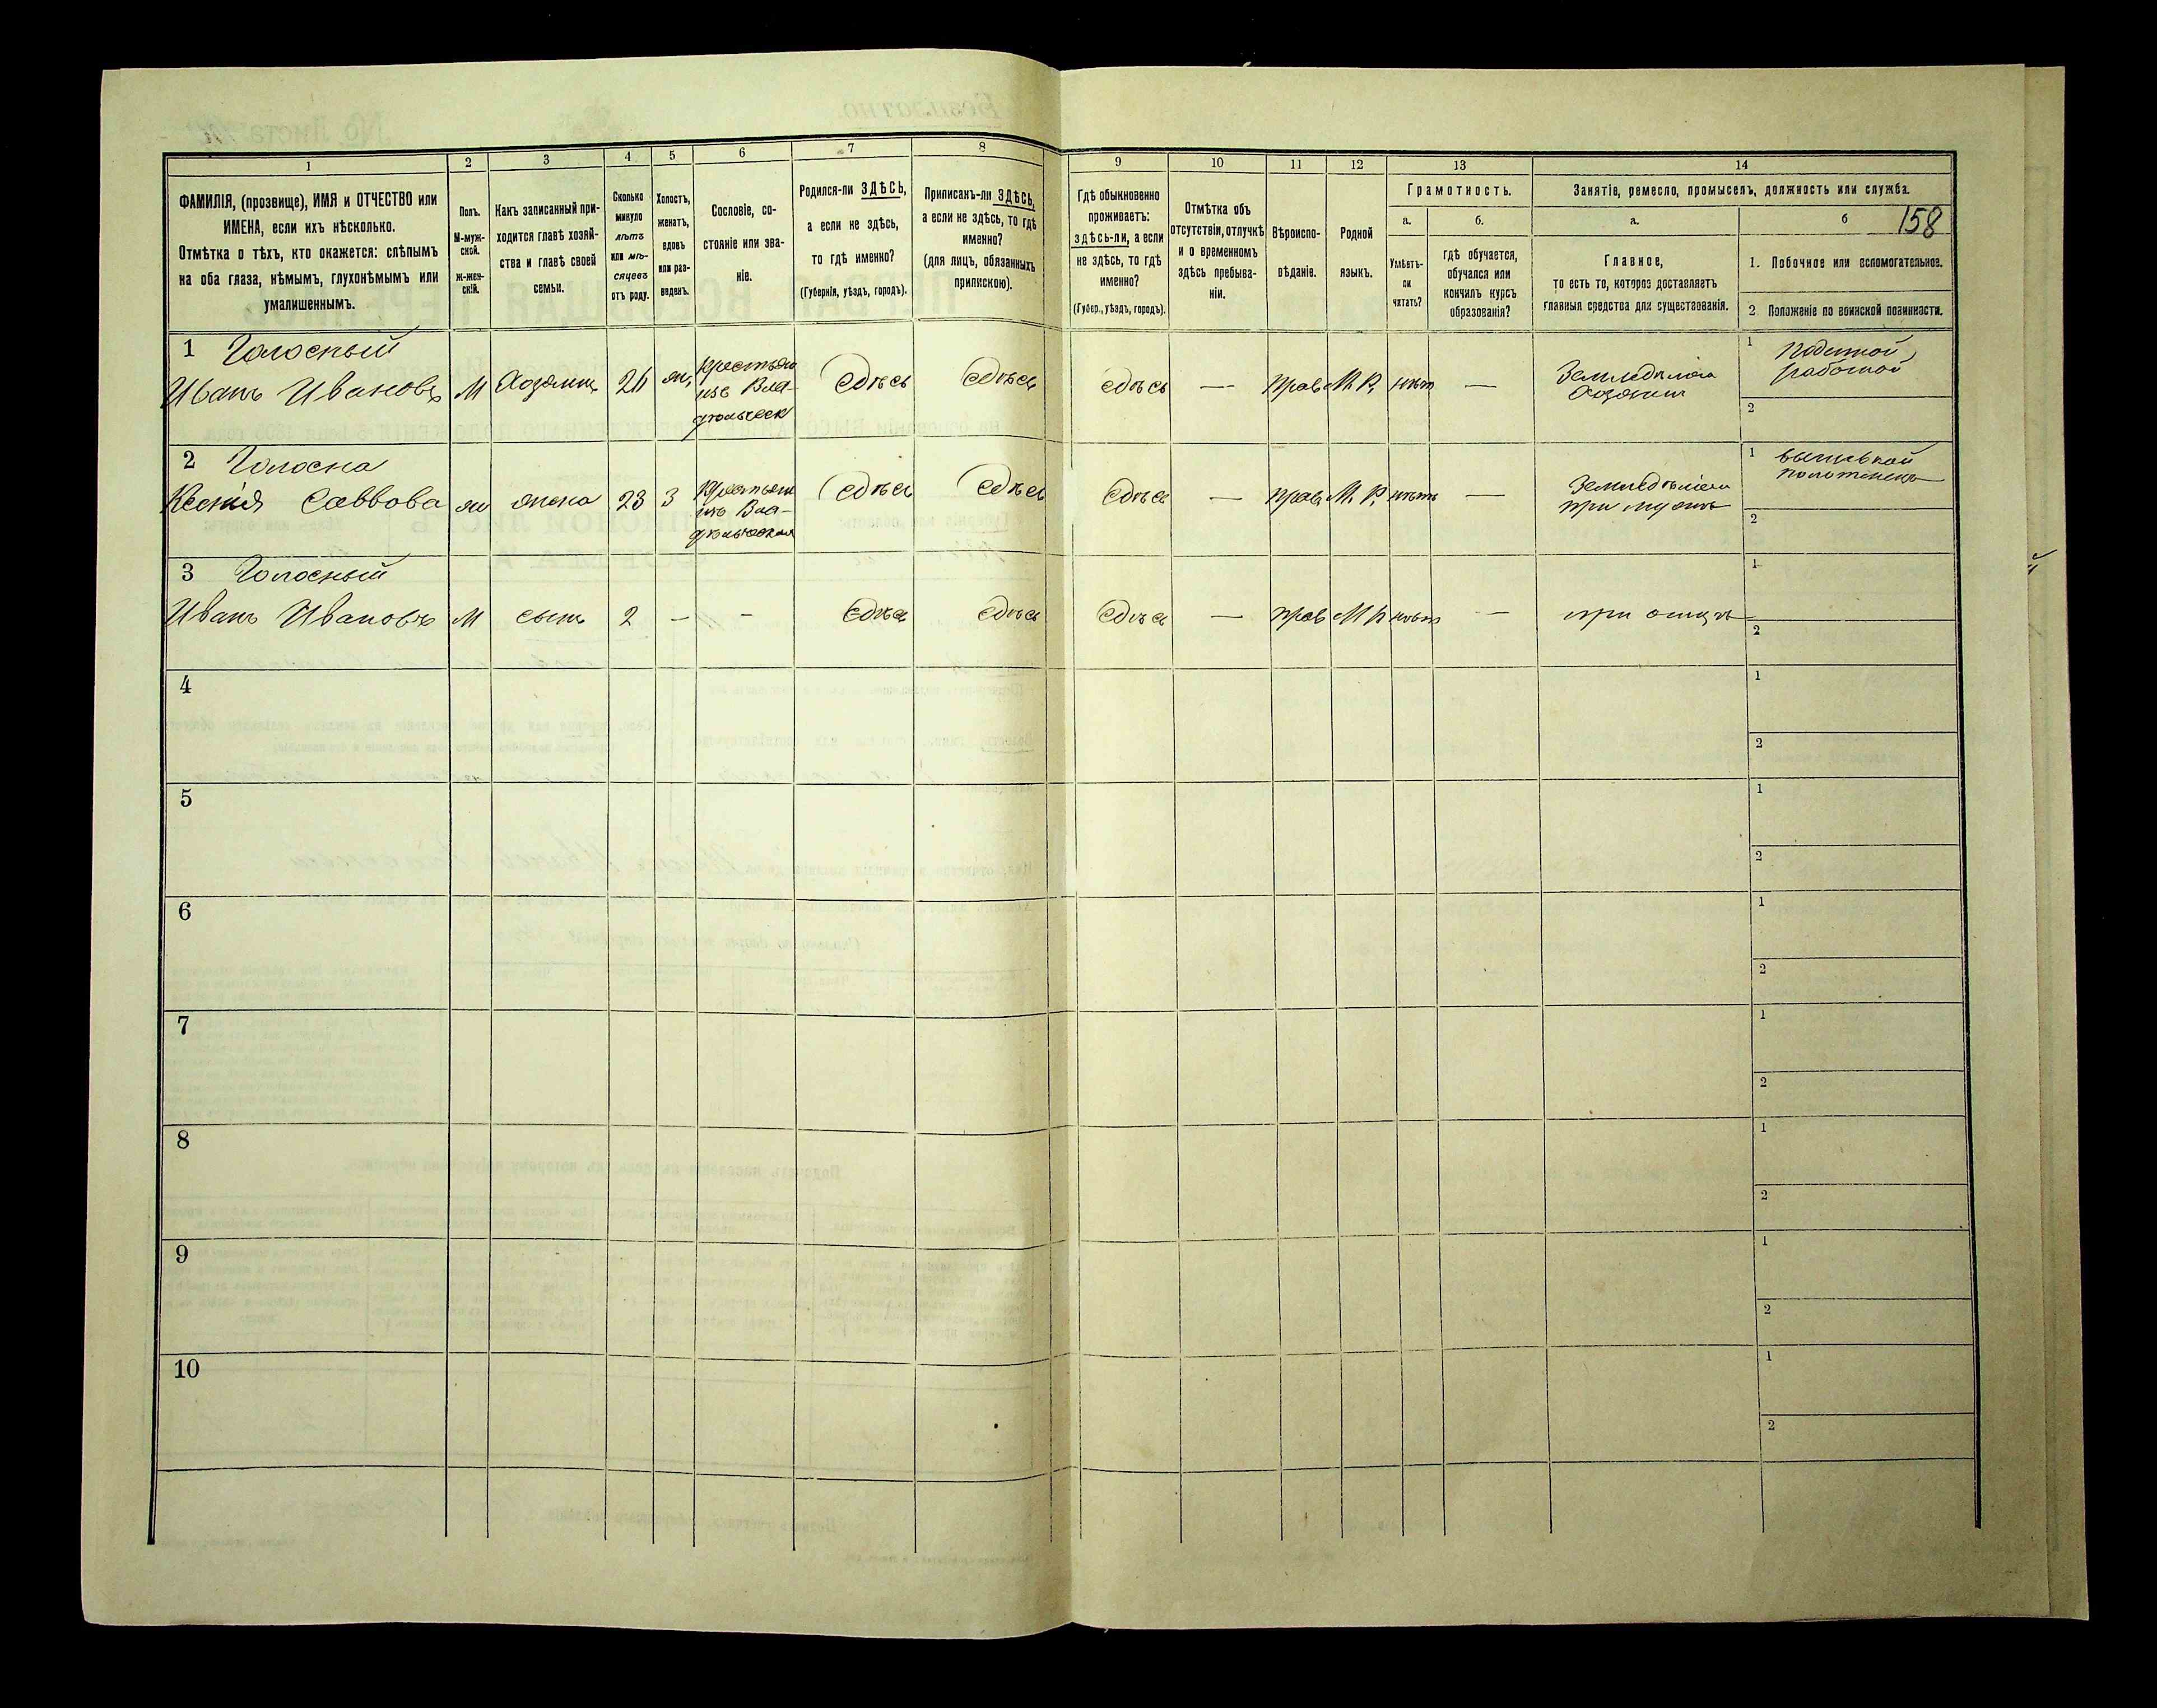 1
2
3
4
5
6
7
8
9
10
11
12
13
14
ФАМИЛІЯ, (прозвище), ИМЯ и ОТЧЕСТВО или
ИМЕНА, если ихъ нѣсколько.
Отмѣтка о тѣхъ, кто окажется: слѣпымъ
на оба глаза, нѣмымъ, глухонѣмымъ или
умалишеннымъ.
Полъ.
М-муж-
ской.
Ж-жен-
скій.
Какъ записанный при-
ходится главѣ хозяй-
ства и главѣ своей
семьи.
Сколько
минуло
лѣтъ
или мѣ-
сяцевъ
отъ роду.
Холостъ,
женатъ,
вдовъ
или раз-
веденъ.
Сословіе, со-
стояніе или зва-
ніе.
Родился-ли ЗДѢСЬ,
а если не здѣсь,
то гдѣ именно?
(Губернія, уѣздъ, городъ).
Приписанъ-ли ЗДѢСЬ,
а если не здѣсь, то гдѣ
именно?
(для лицъ, обязанныхъ
припискою).
Гдѣ обыкновенно
проживаетъ:
здѣсь-ли, а если
не здѣсь, то гдѣ
именно?
(Губер., уѣздъ, городъ).
Отмѣтка объ
отсутствіи, отлучкѣ
и о временномъ
здѣсь пребыва-
ніи.
Вѣроиспо-
вѣданіе.
Родной
языкъ.
Грамотность.
а.
б.
Умѣетъ-
ли
читать?
гдѣ обучается,
обучался или
кончилъ курсъ
образованія?
Занятіе, ремесло, промыселъ, должность или служба.
а.
б
158
Главное,
то есть то, которое доставляетъ
главныя средства для существованія.
1. Побочное или вспомогательное.
2. Положеніе по воинской повинности.
1 Голосный
Иванъ Ивановъ
М
Хозяинъ
Здѣсь
Здѣсь
Здѣсь
—
прав
М. Р.
нѣт
—
Земледѣліе
Хозяин
1 Поденной
работой
2
2 Голосна
Ксенія Саввова
ж
жена
23
З
Здѣсь
Здѣсь
Здѣсь
—
прав
М. Р.
нѣтъ
—
Земледѣліе
при мужѣ
1
2
3 Голосный
Иванъ Ивановъ
М
сынъ
2
—
—
Здѣсь
Здѣсь
Здѣсь
—
прав
М Р
нѣт
—
при отцѣ
1
2
4
1
2
5
1
2
6
1
2
7
1
2
8
1
2
9
1
2
10
1
2